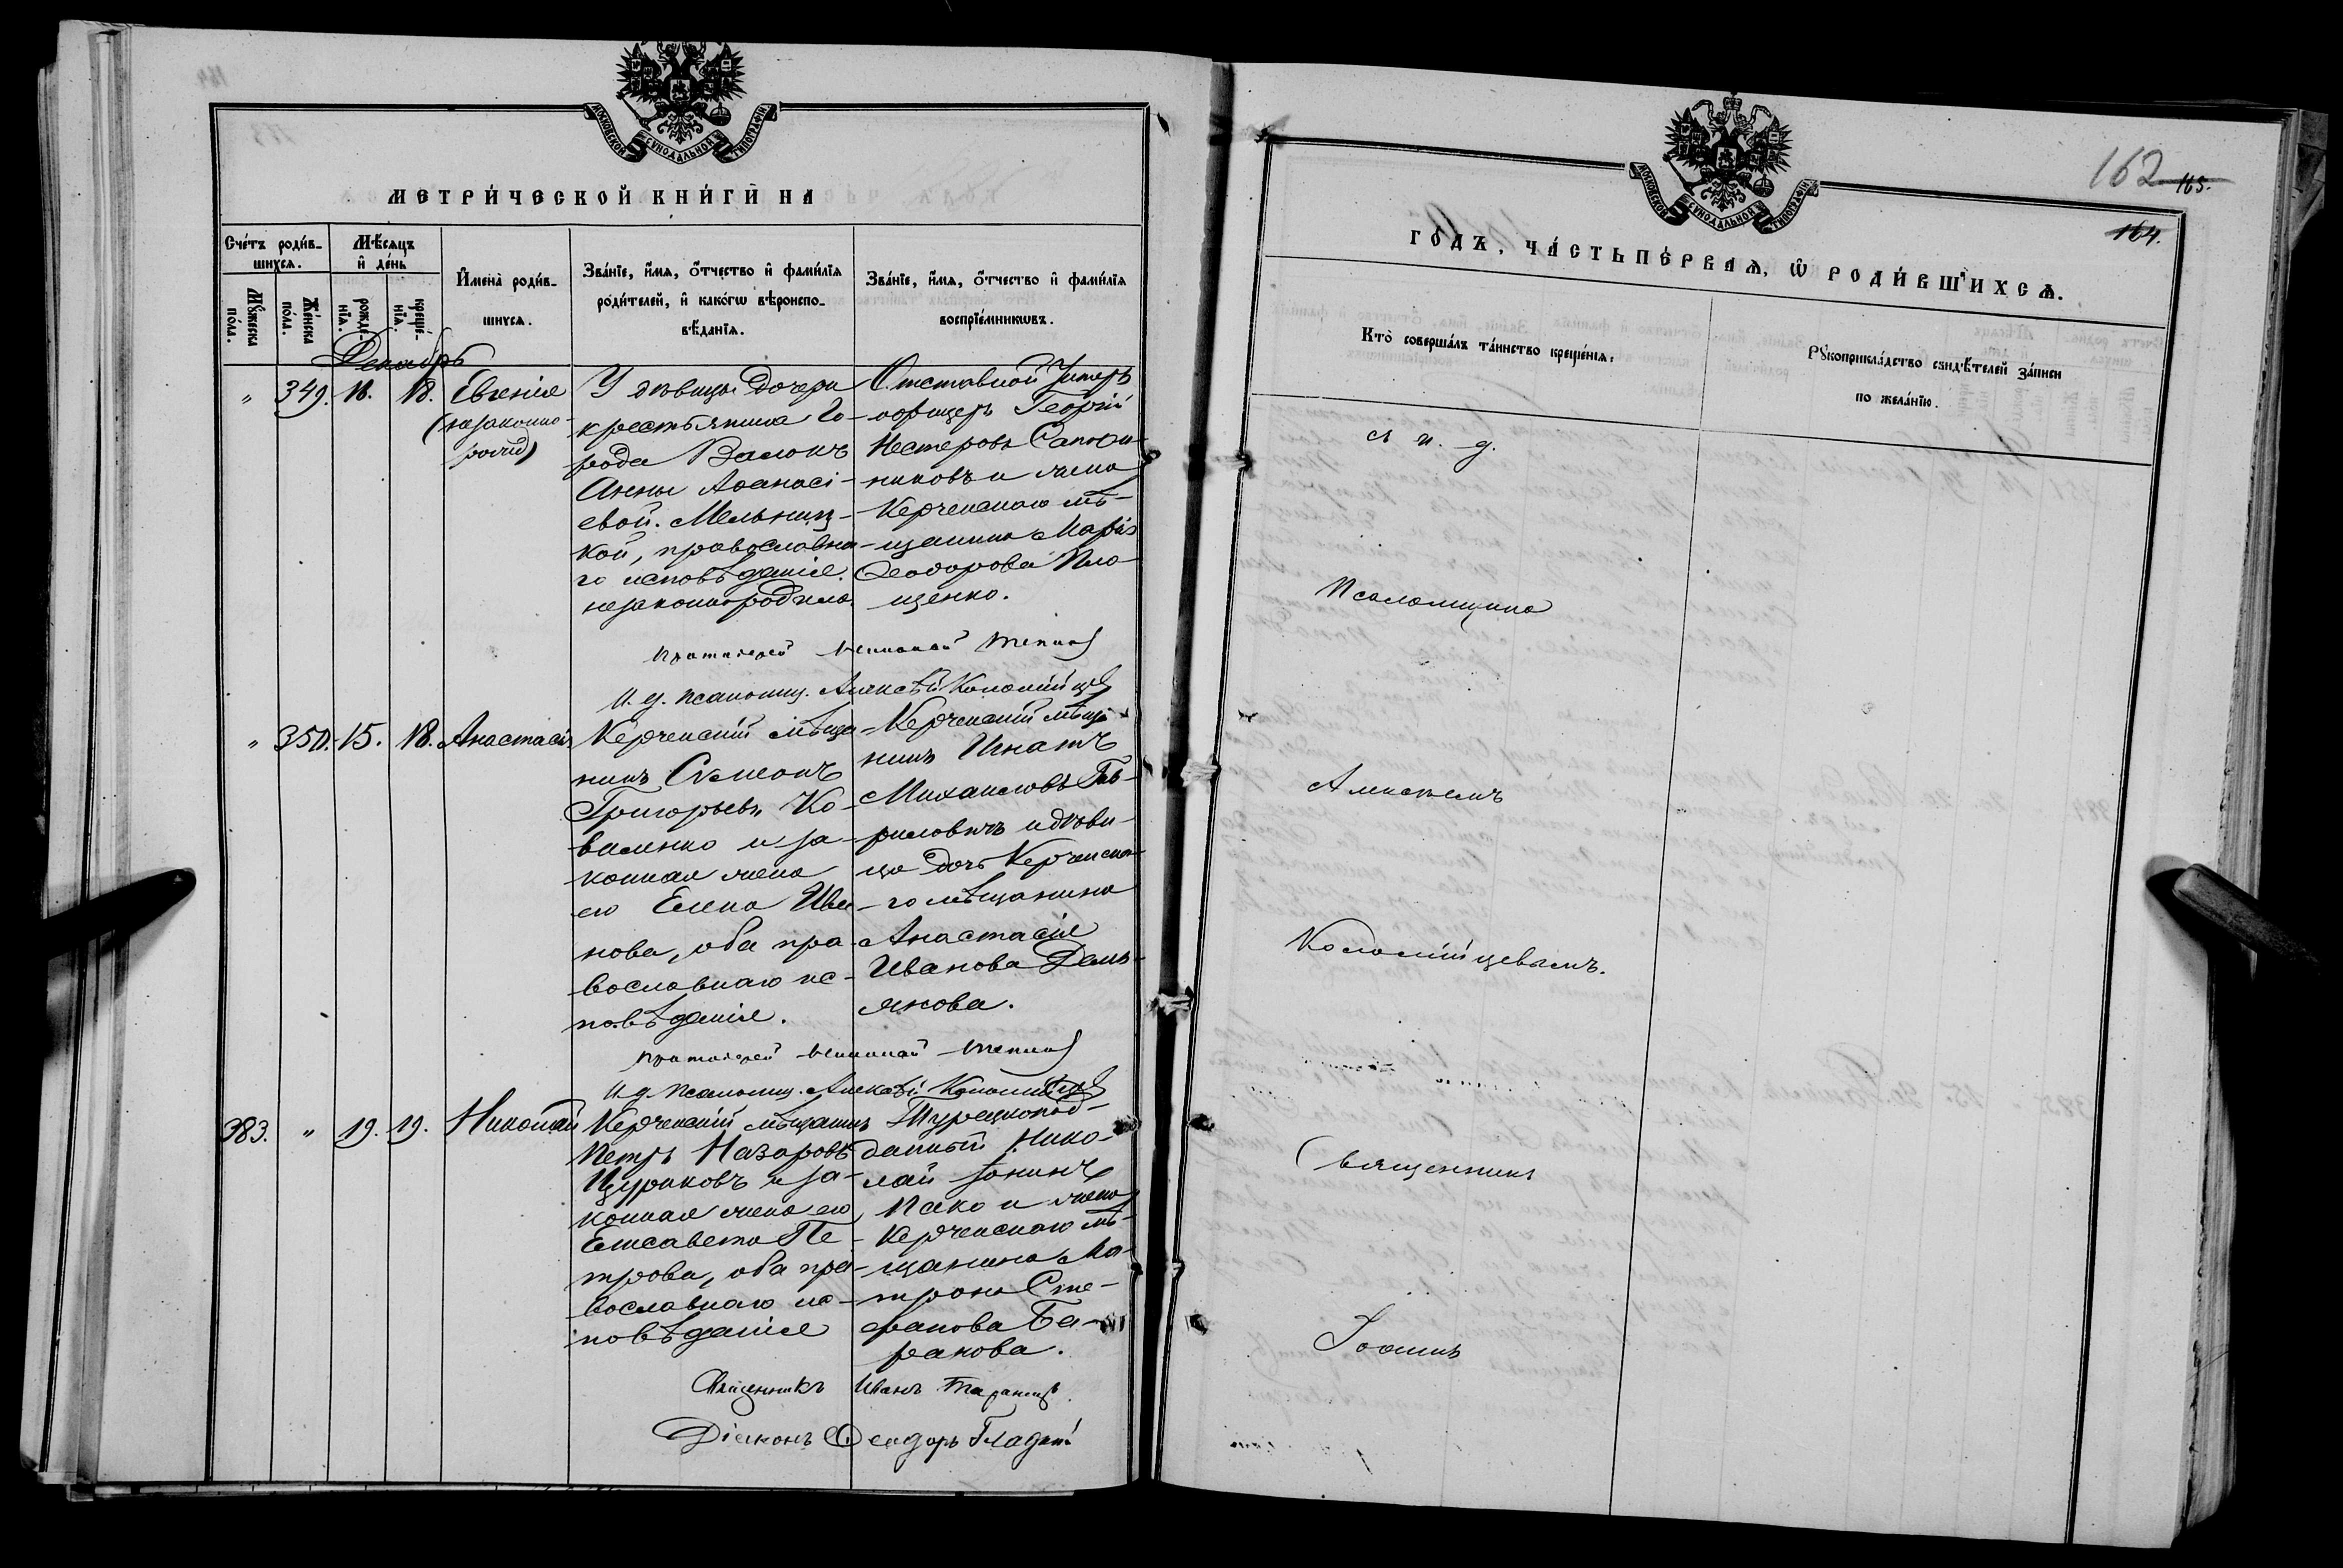 МОСКОВСКОЙ СУНОДАЛЬНОЙ ТИПОГРАФІИ
МЕТРИ́ЧЕСКОЙ КНИ́ГИ НА
Сче́тъ роди́в-
шихся.
Мѣ́сяцъ
и де́нь
Мꙋ́жеска
по́ла.
Же́нска
по́ла.
рожде-
нїѧ.
креще́-
нїѧ.
Имена̀ роди́в-
шихся.
Зва́нїе, и́мѧ, о́тчество и фами́лїѧ
роди́телей, и како́гѡ вѣроиспо-
вѣ́данїѧ.
Зва́нїе, и́мѧ, о́тчество и фами́лїѧ
воспрїе́мникѡвъ.
Декабрь
" 349. 18. 18. Евгенія
(незаконно-
рожд)
У дѣвицы дочери
крестьянина го-
рода Валокъ
Анны Аѳанасі-
евой Мельниц-
кой, православна-
го исповѣданія.
незаконнорожд
Отставной Унтеръ
офицеръ Георгій
Нестеровъ Сапож-
никовъ и жена
Керченскаго мѣ-
щанина Марія
Ѳеодорова Пло-
щенко.
Протоіерей
И. д. псаломщ. Алексѣй Коломійцев
" 350. 15. 18. Анастасія
Керченскій мѣща-
нинъ Симеонъ
Григорьевъ Ко-
валенко и за-
конная жена
его Елена Ива-
нова, оба пра-
вославнаго ис-
повѣданія.
Керченскій мѣща-
нинъ Игнатъ
Михаиловъ Гав-
риловичъ и дѣви-
ца дочь Керченска-
го мѣщанина
Анастасія
Иванова Демь-
янова.
Протоіерей
И. д. псаломщ. Алексѣй Коломійцев
383. " 19. 19. Николай
Керченскій мѣщанинъ
Петръ Назаровъ
Цуриковъ и за-
конная жена его
Елисавета Пе-
трова, оба пра-
вославнаго ис-
повѣданія
Турецкопод-
данный Нико-
лай
Пако и жена
Керченскаго мѣ-
щанина Ма-
трона Сте-
фанова Ба-
ранова.
Священникъ Иванъ
Діаконъ Ѳеодоръ Гладкій
МОСКОВСКОЙ СУНОДАЛЬНОЙ ТИПОГРАФІИ
162 165.
164.
ГО́ДЪ, ЧА́СТЬ ПЕ́РВАѦ, Ѡ РОДИ́ВШИХСѦ.
Кто̀ соверша́лъ та́инство креще́нїѧ.
Рꙋкоприкла́дство свидѣ́телей за́писи
по жела́нїю.
и. д.
Псаломщика
Алексѣемъ
Коломійцевымъ.
Священникъ
Іоаннъ